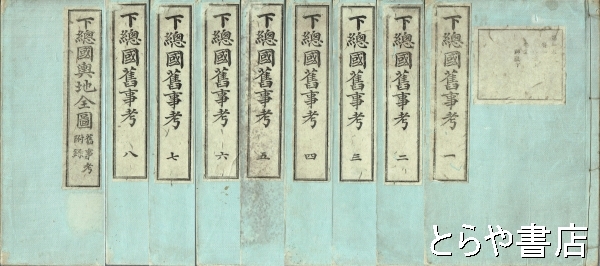 下總國舊事考 一
下總國舊事考 二
下總國舊事考 三
下總國舊事考 四
下總國舊事考 五
下總國舊事考 六
下總國舊事考 七
下總國舊事考 八
下總國輿地全圖 舊事考附録
とらや書店